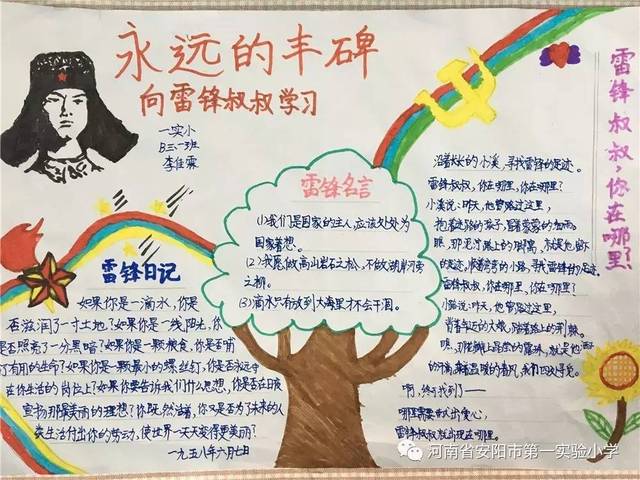 永远的丰碑
向雷锋叔叔学习
一实小
李佳霖
雷锋日记
如果你是一滴水，你是
否滋润了一寸土地？如果你是一线阳光，你
是否照亮了一分黑暗？如果你是一颗粮食，你是否哺
有用的生命？如果你是一颗最小的螺丝钉，你是否永远守
在你生活的岗位上？如果你要告诉我们什么思想，你是否在日夜
宣扬那最美丽的理想？你既然活着，你又是否为了未来的人
类生活付出你的劳动，使世界一天天变得更美丽？
一九五八年六月七日
雷锋名言
(1)我们是国家的主人，应该处处为
国家着想。
(2)我愿做高山岩石之松，不做湖岸河旁
之柳。
(3)滴水只有放到大海里才不会干涸。
雷锋叔叔，你在哪里？
沿着长长的小溪，寻找雷锋的足迹。
雷锋叔叔，你在哪里，你在哪里？
小溪说：昨天，他曾路过这里，
抱着迷路的孩子，冒着蒙蒙的细雨。
瞧，那泥泞路上的脚窝，就是他留下
的足迹。顺着弯弯的小路，寻找雷锋的足迹。
雷锋叔叔，你在哪里，你在哪里？
小路说：昨天，他曾路过这里，
背着年迈的大娘，踏着路上的荆棘。
瞧，那花瓣上晶莹的露珠，就是他洒下
的汗滴，乘着温暖的春风，我们四处寻觅。
啊，终于找到了——
哪里需要献出爱心，
雷锋叔叔就出现在哪里。
河南省安阳市第一实验小学